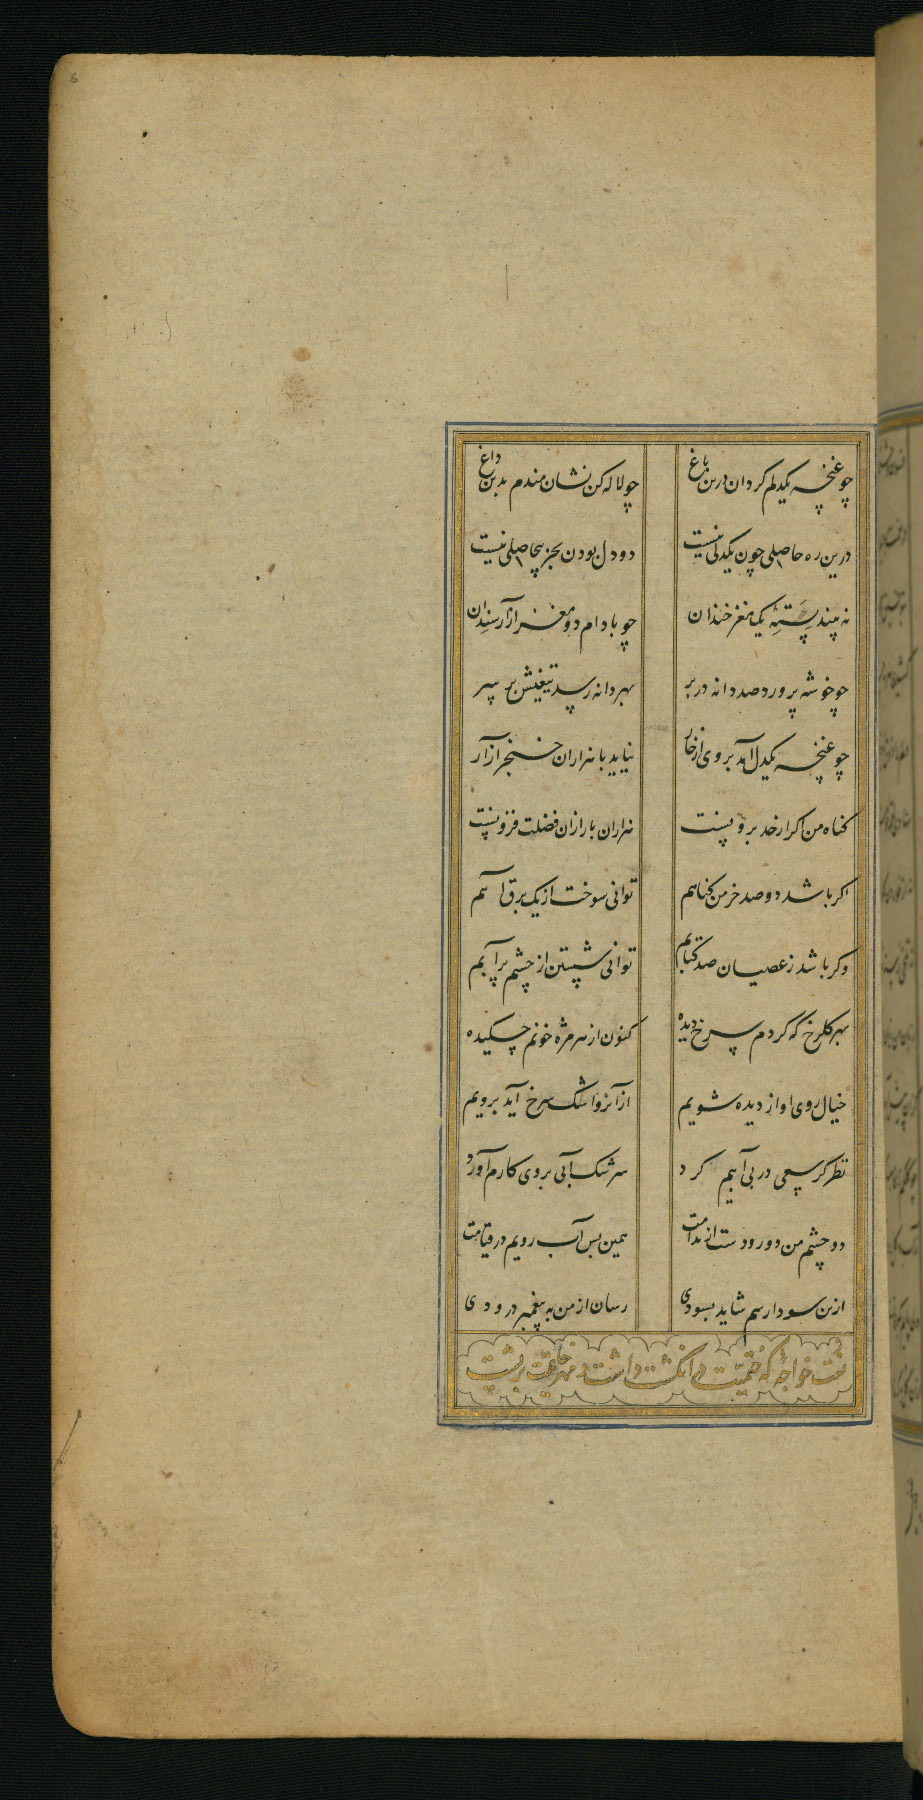 چو غنچه یکدلم کردان درین باغ چو لاله کن نشان مندم بدین داغ
درین ره حاصلی چون یکدلی نیست دو دل بودن بجز بیحاصلی نیست
نه بیند پسته یک مغز خندان چو بادام دو مغز آزار سندان
چو خوشه پرورد صد دانه در بر بهر دانه رسد تیغیش بر سر
چو غنچه یکدل آمد بروی از خار نیاید با هزاران خنجر آزار
کناه من اکر از حد برونست هزاران بار ازان فضلت فزونست
اکر باشد دو صد خرمن کناهم توانی سوخت از یک برق آهم
وکر باشد ز عصیان صد کتابم توانی شستن از چشم پر آبم
بهر کلرخ که کردم سرخ دیده کنون از هر مژه خونم چکیده
خیال روی او از دیده شویم از آنرو اشک سرخ آید برویم
نظر کر سعی در بی آبیم کرد سرشک آبی بروی کارم آورد
دو چشم من دو رودست از ندامت همین بس آب رویم در قیامت
ازین سودا رسم شاید بسودی رسان از من به پیغمبر درودی
نعت خواجهٔ که ختمیت در انکشت داشت و مهر خاتمیت بر پشت